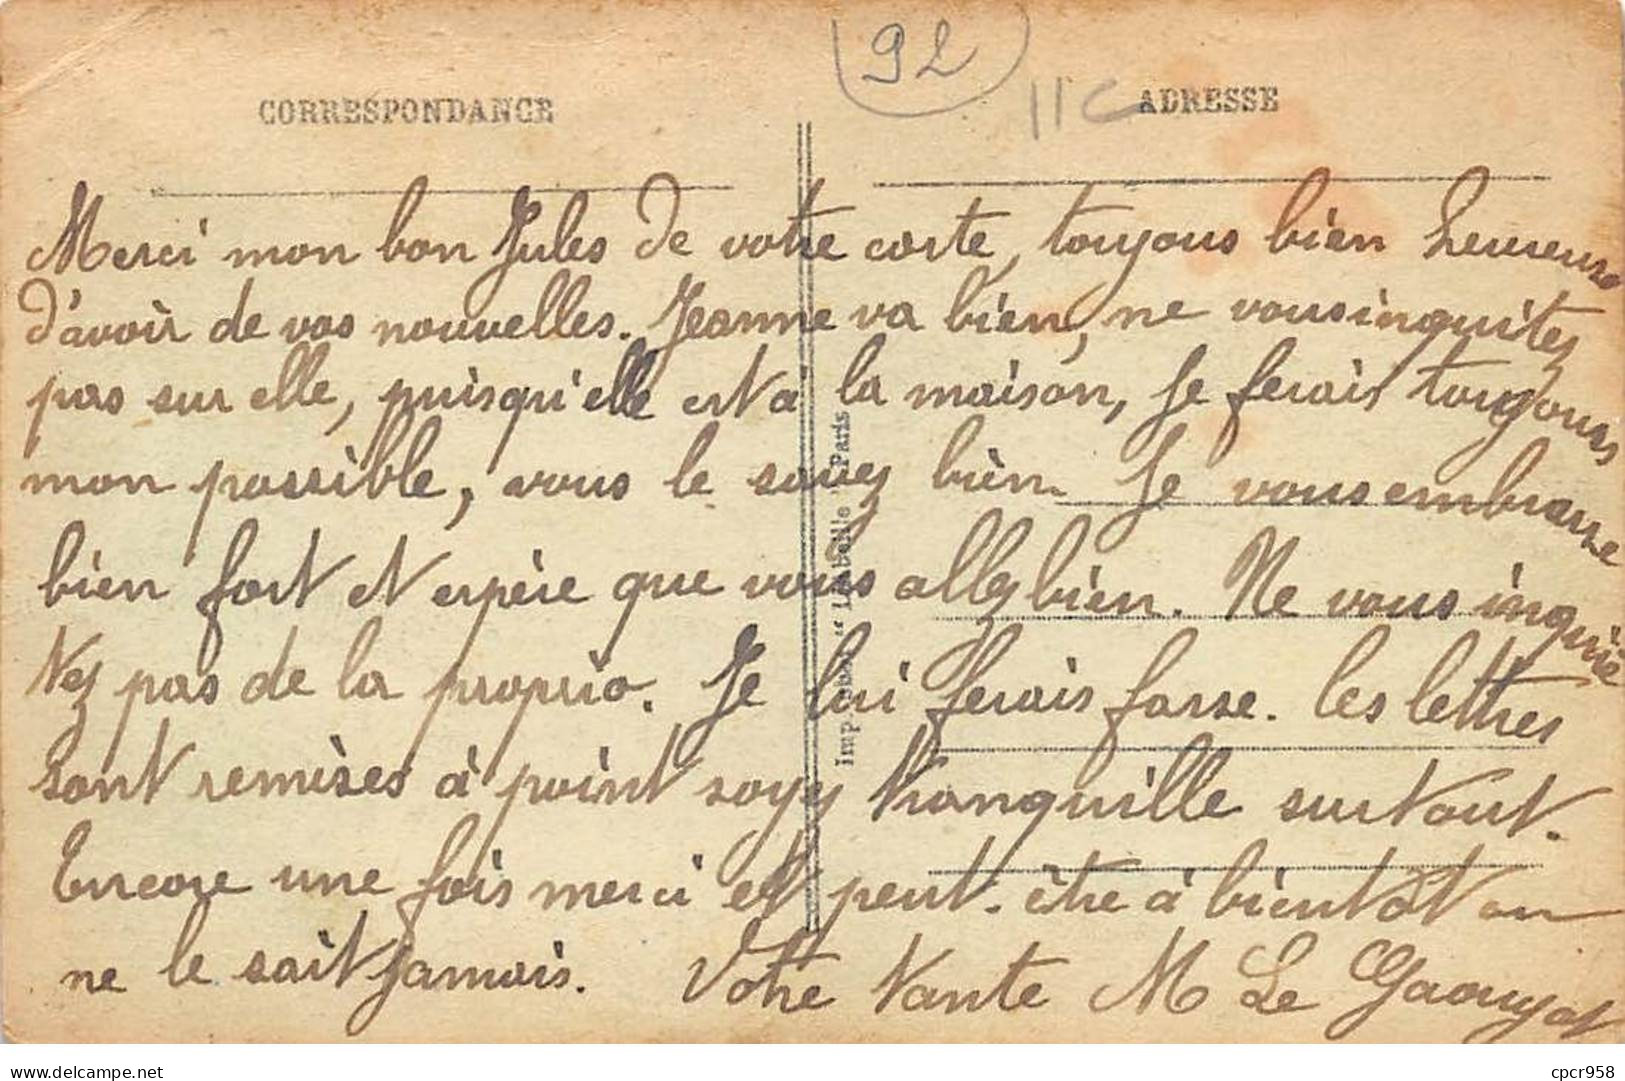 92
11C
CORRESPONDANCE
ADRESSE
Merci mon bon Jules de votre carte, toujous bien heureuse
d'avoir de vos nouvelles. Jeanne va bien, ne vous inquitez
pas sur elle, puisqu'elle est à la maison, je ferais toujours
mon possible, vous le savez bien. Je vous embrasse
bien fort et espère que vous allez bien. Ne vous inquiè
tez pas de la proprio. Je lui ferais farse. les lettres
sont remises à point soyez tranquille surtout.
Encore une fois merci et peut-être à bientôt on
ne le sait jamais. Votre tante M Le
Imp
Paris
delcampe.net
cpcr958